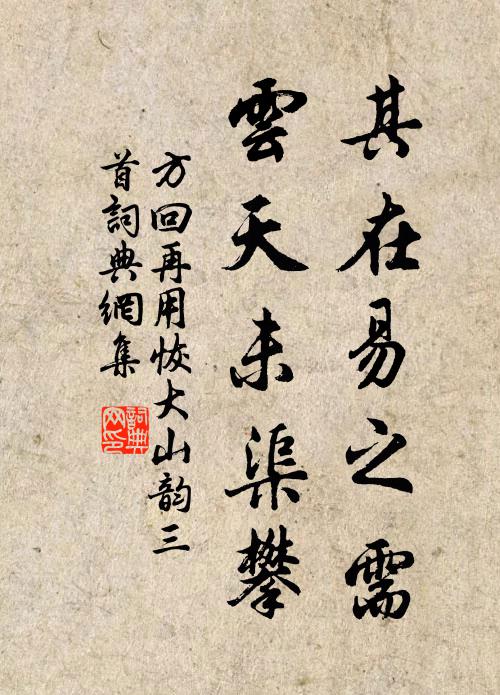 其在易之需
雲天未渠攀
方回再用恢大山韵三
首詞典網集
詞典
网印